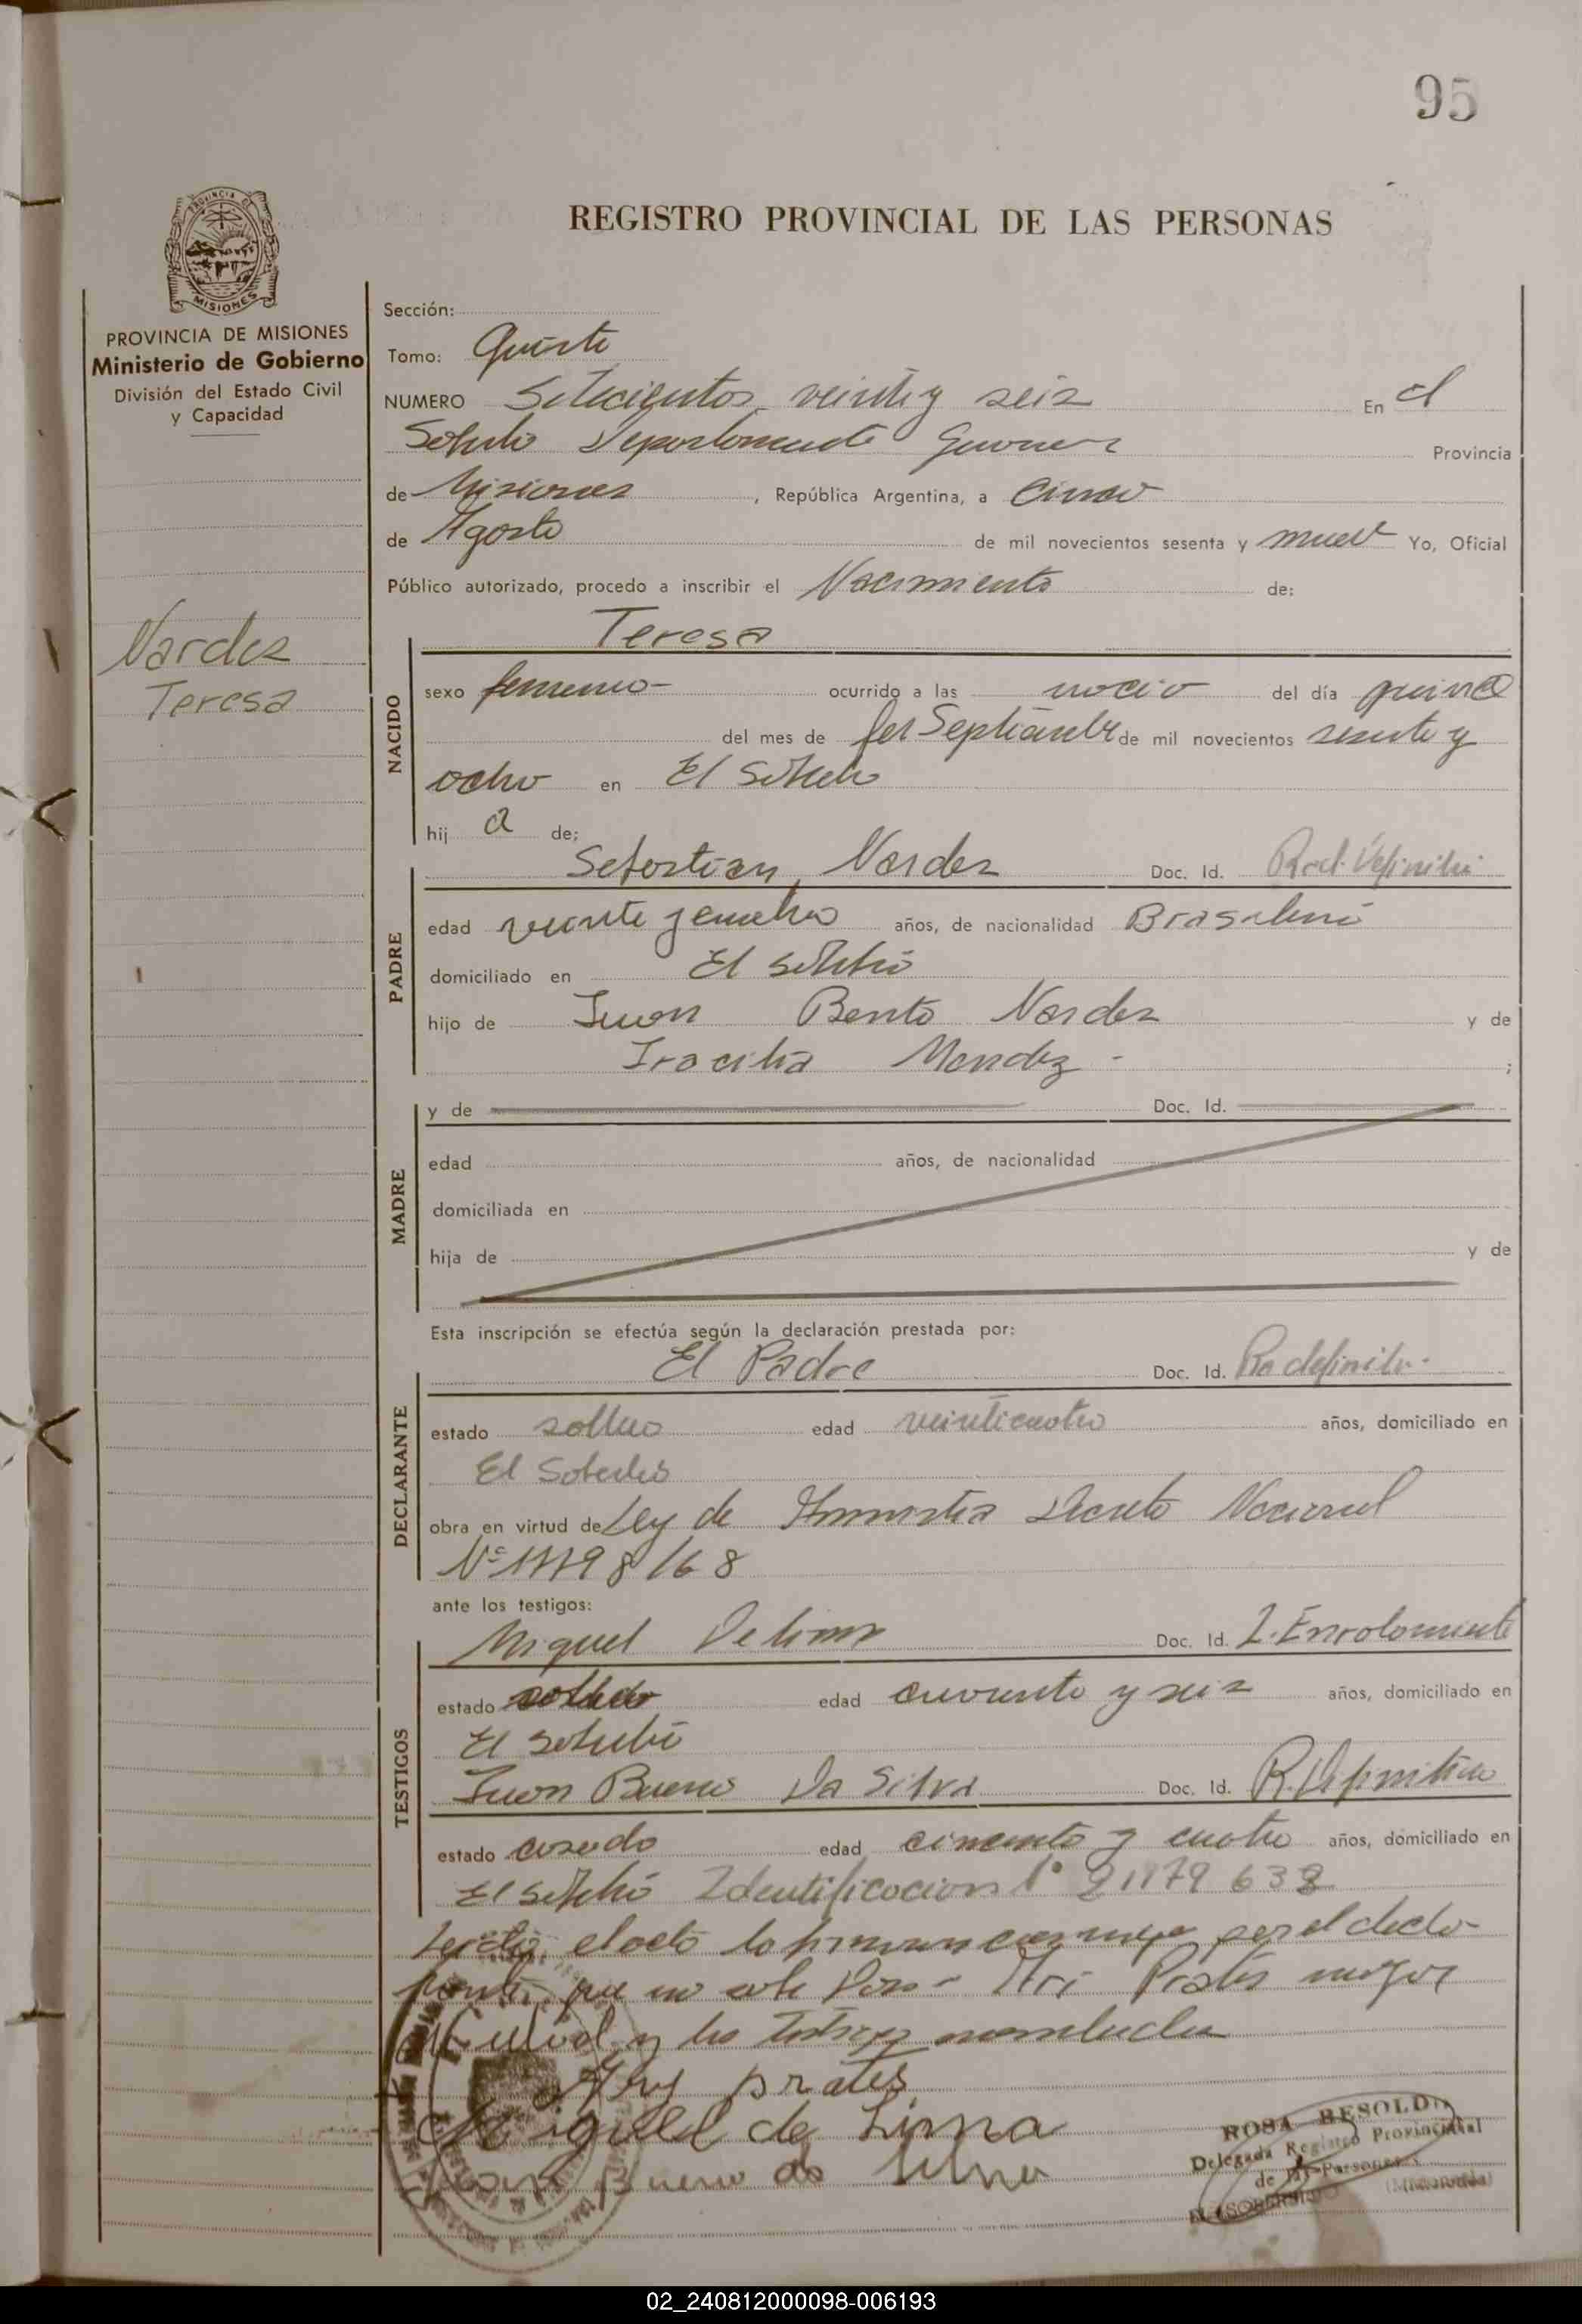 95
REGISTRO PROVINCIAL DE LAS PERSONAS
PROVINCIA DE MISIONES
Ministerio de Gobierno
División del Estado Civil
y Capacidad
Nardes
Teresa
Sección:
Tomo: Quinto
NUMERO Setecientos veinte y seis En el
Departamento Provincia
de Misiones, República Argentina, a Cinco
de Agosto de mil novecientos sesenta y nueve Yo, Oficial
Público autorizado, procedo a inscribir el Nacimiento de:
Teresa
NACIDO
sexo femenino ocurrido a las del día quince
del mes de Septiembre de mil novecientos sesenta y
ocho en El
hij a de:
PADRE
Sebastian Nardes Doc. Id. Rad. Definitiv
edad veinte y cuatro años, de nacionalidad Brasilera
domiciliado en El
hijo de Juan Bento Nardes y de
Mendez ;
MADRE
y de Doc. Id.
edad años, de nacionalidad
domiciliada en
hija de y de
Esta inscripción se efectúa según la declaración prestada por:
El Padre Doc. Id. Ra definitiv
DECLARANTE
estado soltero edad veinticuatro años, domiciliado en
El
obra en virtud de Ley de Amnistia Decreto Nacional
Nº 17798/68
ante los testigos:
TESTIGOS
Miguel De Lima Doc. Id. L. Enrolamiento
estado soltero edad cuarenta y seis años, domiciliado en
El
Juan Bueno Da Silva Doc. Id. R. Definitiva
estado casado edad cincuenta y cuatro años, domiciliado en
El Identificacion
el acto por el decla-
rante que no sabe Ari Prates mayor
y los testigos
Ary prates
Miguel de Lima
Bueno da Silva
ROSA BESOLD
Delegada Registro Provincial
de las Personas
02_240812000098-006193